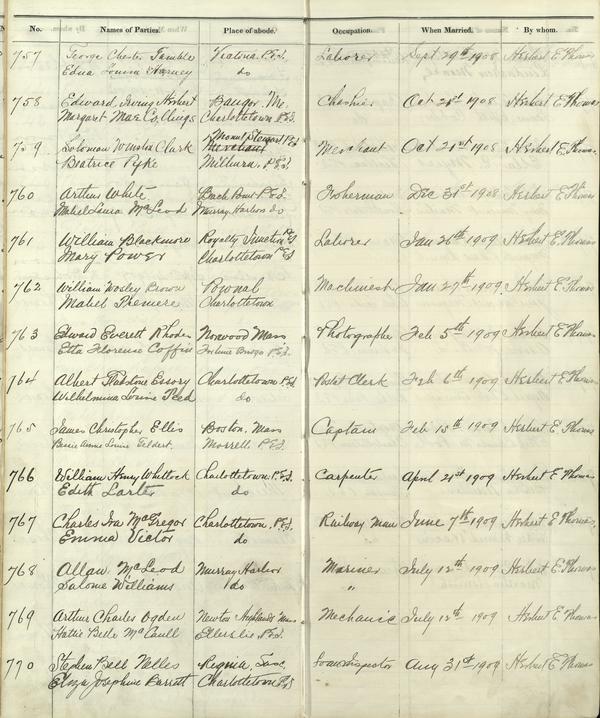 No. Names of Parties. Place of abode. Occupation. When Married. By whom.
757 George Chester Tamble Victoria P.E.I. Laborer Sept 29th 1908 Herbert E Thomas
Edna Louisa Harney do
758 Edward Irving Herbert Bangor, Me. Cashier Oct 21st 1908 Herbert E Thomas
Margaret Mae Charlottetown P.E.I.
759 Soloman Clark Mount Stewart P.E.I. Merchant Oct 21st 1908 Herbert E Thomas
Beatrice Pyke Milburn, P.E.I.
760 Arthur White P.E.I. Fisherman Dec 31st 1908 Herbert E Thomas
Mabel Laura McLeod Murray Harbor do
761 William Blackmore Royalty Junction P.E.I. Laborer Jan 26th 1909 Herbert E Thomas
Mary Power Charlottetown P.E.I.
762 William Wesley Brown Pownal Machinest Jan 27th 1909 Herbert E Thomas
Mabel Charlottetown
763 Edward Everett Rhodes Norwood Mass Photographer Feb 5th 1909 Herbert E Thomas
Etta Florence Coffin Fortune Bridge P.E.I.
764 Albert Gladstone Essery Charlottetown P.E.I. Postal Clerk Feb 6th 1909 Herbert E Thomas
Wilhelmina Louise do
765 James Christopher Ellis Boston, Mass Captain Feb 15th 1909 Herbert E Thomas
Annie Louise Geldert. Morrell P.E.I.
766 William Henry Whitlock Charlottetown, P.E.I. Carpenter April 21st 1909 Herbert E Thomas
Edith Larter do
767 Charles Ira McGregor Charlottetown, P.E.I. Railway man June 7th 1909 Herbert E Thomas.
Emma Victor do
768 Allan McLeod Murray Harbor Mariner July 12th 1909 Herbert E Thomas
Salome Williams do "
769 Arthur Charles Ogden Newton Highlands Mass Mechanic July 12th 1909 Herbert E Thomas
Hattie Belle McCaull Ellerslie P.E.I.
770 Stephen Bell Nelles Regina, Sask, Loan Inspector Aug 31st 1909 Herbert E Thomas
Eliza Josephine Barrett Charlottetown P.E.I